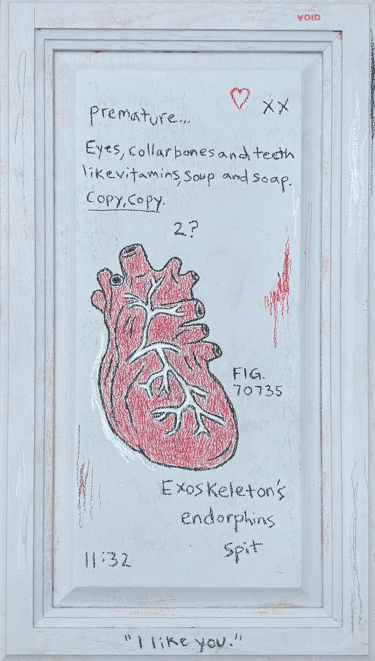 VOID
XX
premature...
Eyes, collarbones and teeth
like vitamins, soup and soap.
Copy, Copy.
2?
FIG.
70735
Exoskeleton's
endorphins
spit
11:32
"I like you."